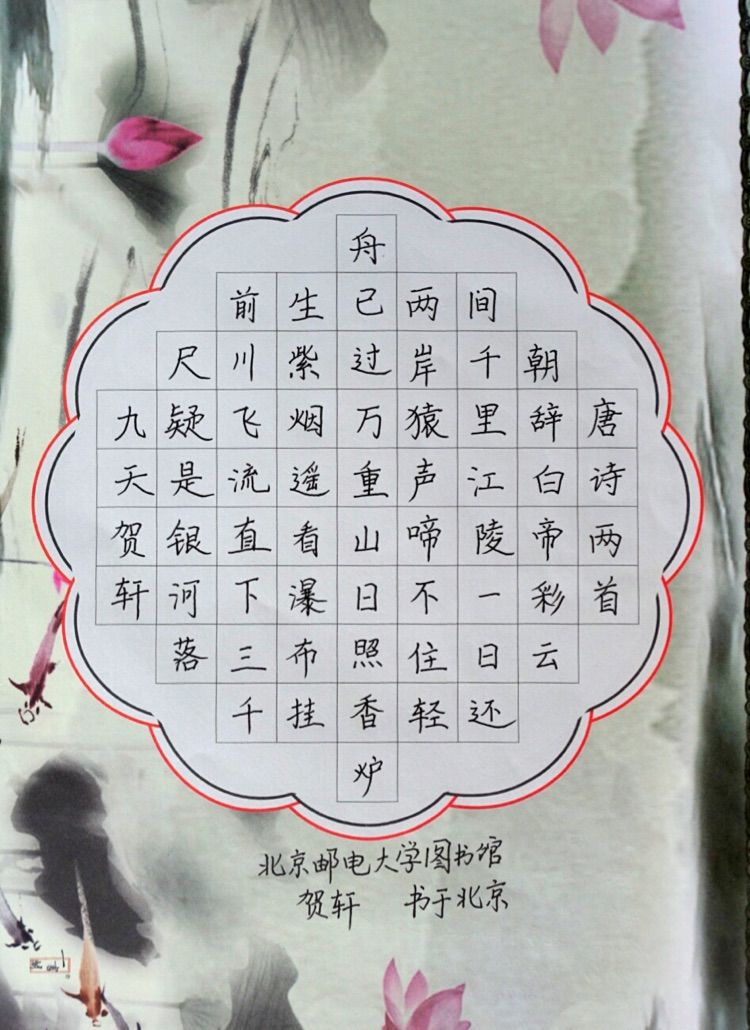 唐诗两首
朝辞白帝彩云
间千里江陵一日还
两岸猿声啼不住轻
舟已过万重山日照香炉
生紫烟遥看瀑布挂
前川飞流直下三千
尺疑是银河落
九天贺轩
北京邮电大学图书馆
贺轩 书于北京